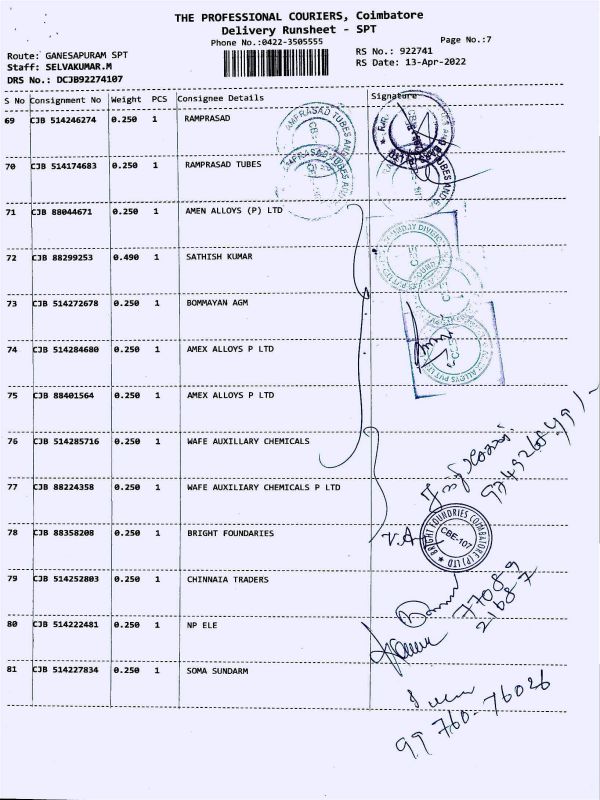 THE PROFESSIONAL COURIERS, Coimbatore
Delivery Runsheet - SPT
Phone No.:0422-3505555
Page No.:7
Route: GANESAPURAM SPT
RS No.: 922741
Staff: SELVAKUMAR.M
RS Date: 13-Apr-2022
DRS No.: DCJB92274107
S No Consignment No Weight PCS Consignee Details Signature
69 CJB 514246274 0.250 1 RAMPRASAD
70 CJB 514174683 0.250 1 RAMPRASAD TUBES
71 CJB 88044671 0.250 1 AMEN ALLOYS (P) LTD
72 CJB 88299253 0.490 1 SATHISH KUMAR
73 CJB 514272678 0.250 1 BOMMAYAN AGM
74 CJB 514284680 0.250 1 AMEX ALLOYS P LTD
75 CJB 88401564 0.250 1 AMEX ALLOYS P LTD
76 CJB 514285716 0.250 1 WAFE AUXILLARY CHEMICALS
77 CJB 88224358 0.250 1 WAFE AUXILIARY CHEMICALS P LTD
78 CJB 88358208 0.250 1 BRIGHT FOUNDARIES
BRIGHT FOUNDRIES COIMBATORE (P) LTD
CBE-107
79 CJB 514252803 0.250 1 CHINNAIA TRADERS
77089
21687
80 CJB 514222481 0.250 1 NP ELE
81 CJB 514227834 0.250 1 SOMA SUNDARM
99 760-76026